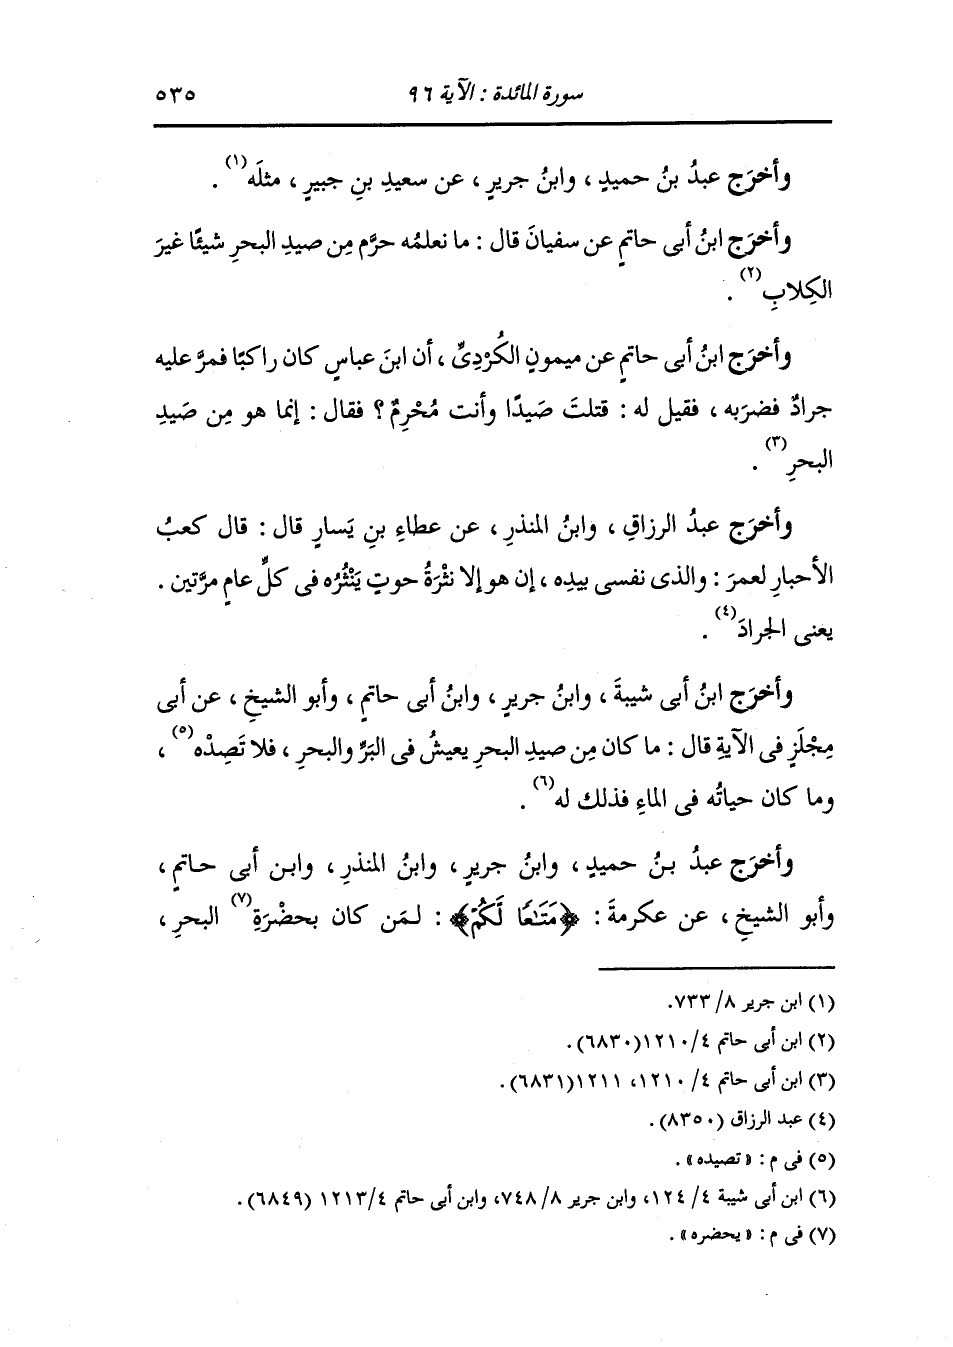 سورة المائدة : الآية ٩٦ ٥٣٥
وأخرَج عبدُ بنُ حميدٍ ، وابنُ جريرٍ ، عن سعيدِ بنِ جبيرٍ ، مثلَه(١) .
وأخرَج ابنُ أبى حاتمٍ عن سفيانَ قال : ما نعلمُه حرَّم مِن صيدِ البحرِ شيئًا غيرَ
الكِلابِ(٢) .
وأخرَج ابنُ أبى حاتمٍ عن ميمونٍ الكُرْدِىِّ ، أن ابنَ عباسٍ كان راكبًا فمرَّ عليه
جرادٌ فضرَبه ، فقيل له : قتلتَ صَيدًا وأنت مُحْرِمٌ ؟ فقال : إنما هو مِن صَيدِ
البحرِ(٣) .
وأخرَج عبدُ الرزاقِ ، وابنُ المنذرِ ، عن عطاءِ بنِ يَسارٍ قال : قال كعبُ
الأحبارِ لعمرَ : والذى نفسى بيدِه ، إن هو إلا نثْرَةُ حوتٍ يَنْثُرُه فى كلِّ عامٍ مرَّتين .
يعنى الجرادَ(٤) .
وأخرَج ابنُ أبى شيبةَ ، وابنُ جريرٍ ، وابنُ أبى حاتمٍ ، وأبو الشيخِ ، عن أبى
مِجْلَزٍ فى الآيةِ قال : ما كان مِن صيدِ البحرِ يعيشُ فى البَرِّ والبحرِ ، فلا تَصِدْه(٥) ،
وما كان حياتُه فى الماءِ فذلك له(٦) .
وأخرَج عبدُ بنُ حميدٍ ، وابنُ جريرٍ ، وابنُ المنذرِ ، وابن أبى حاتمٍ ،
وأبو الشيخِ ، عن عكرمةَ : ﴿مَتَٰعًا لَّكُمْ﴾ : لمَن كان بحضْرَةِ(٧) البحرِ ،
(١) ابن جرير ٨/ ٧٣٣.
(٢) ابن أبى حاتم ٤/ ١٢١٠(٦٨٣٠).
(٣) ابن أبى حاتم ٤/ ١٢١٠، ١٢١١(٦٨٣١).
(٤) عبد الرزاق (٨٣٥٠).
(٥) فى م : « تصيده » .
(٦) ابن أبى شيبة ٤/ ١٢٤، وابن جرير ٨/ ٧٤٨، وابن أبى حاتم ١٢١٣/٤ (٦٨٤٩).
(٧) فى م : « يحضره » .